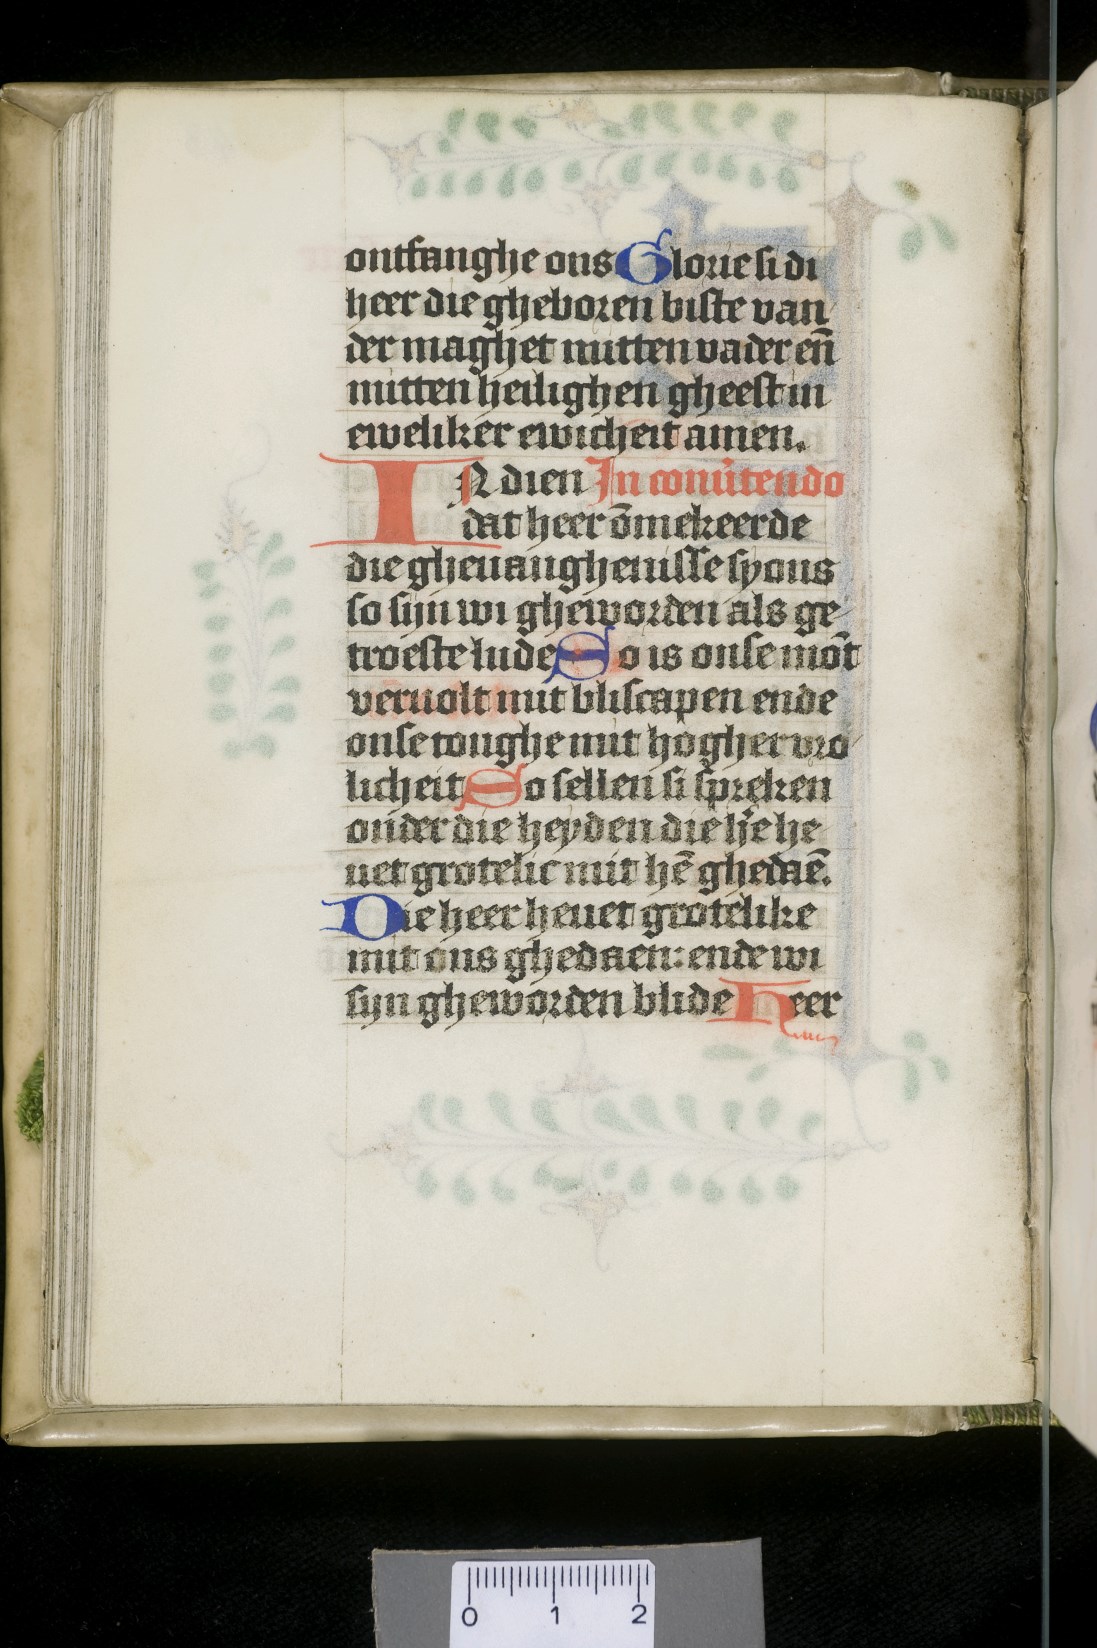 ontfanghe ons Glorie si di
heer die gheboren biste van
der maghet mitten vader en̄
mitten heilighen gheest in
eweliker ewicheit amen.
IN dien In conu̇tendo
dat heer ōmekeerde
die gheuanghenisse syons
so sijn wi gheworden als ge
troeste lude So is onse mōt
veruolt mit bliscapen ende
onse tonghe mit hogher vro
licheit So sellen si spreken
onder die heyden die hr̄e he
uet grotelic mit hē ghedaē.
Die heer heuet grotelike
mit ons ghedaen: ende wi
sijn gheworden blide Heer
0 1 2